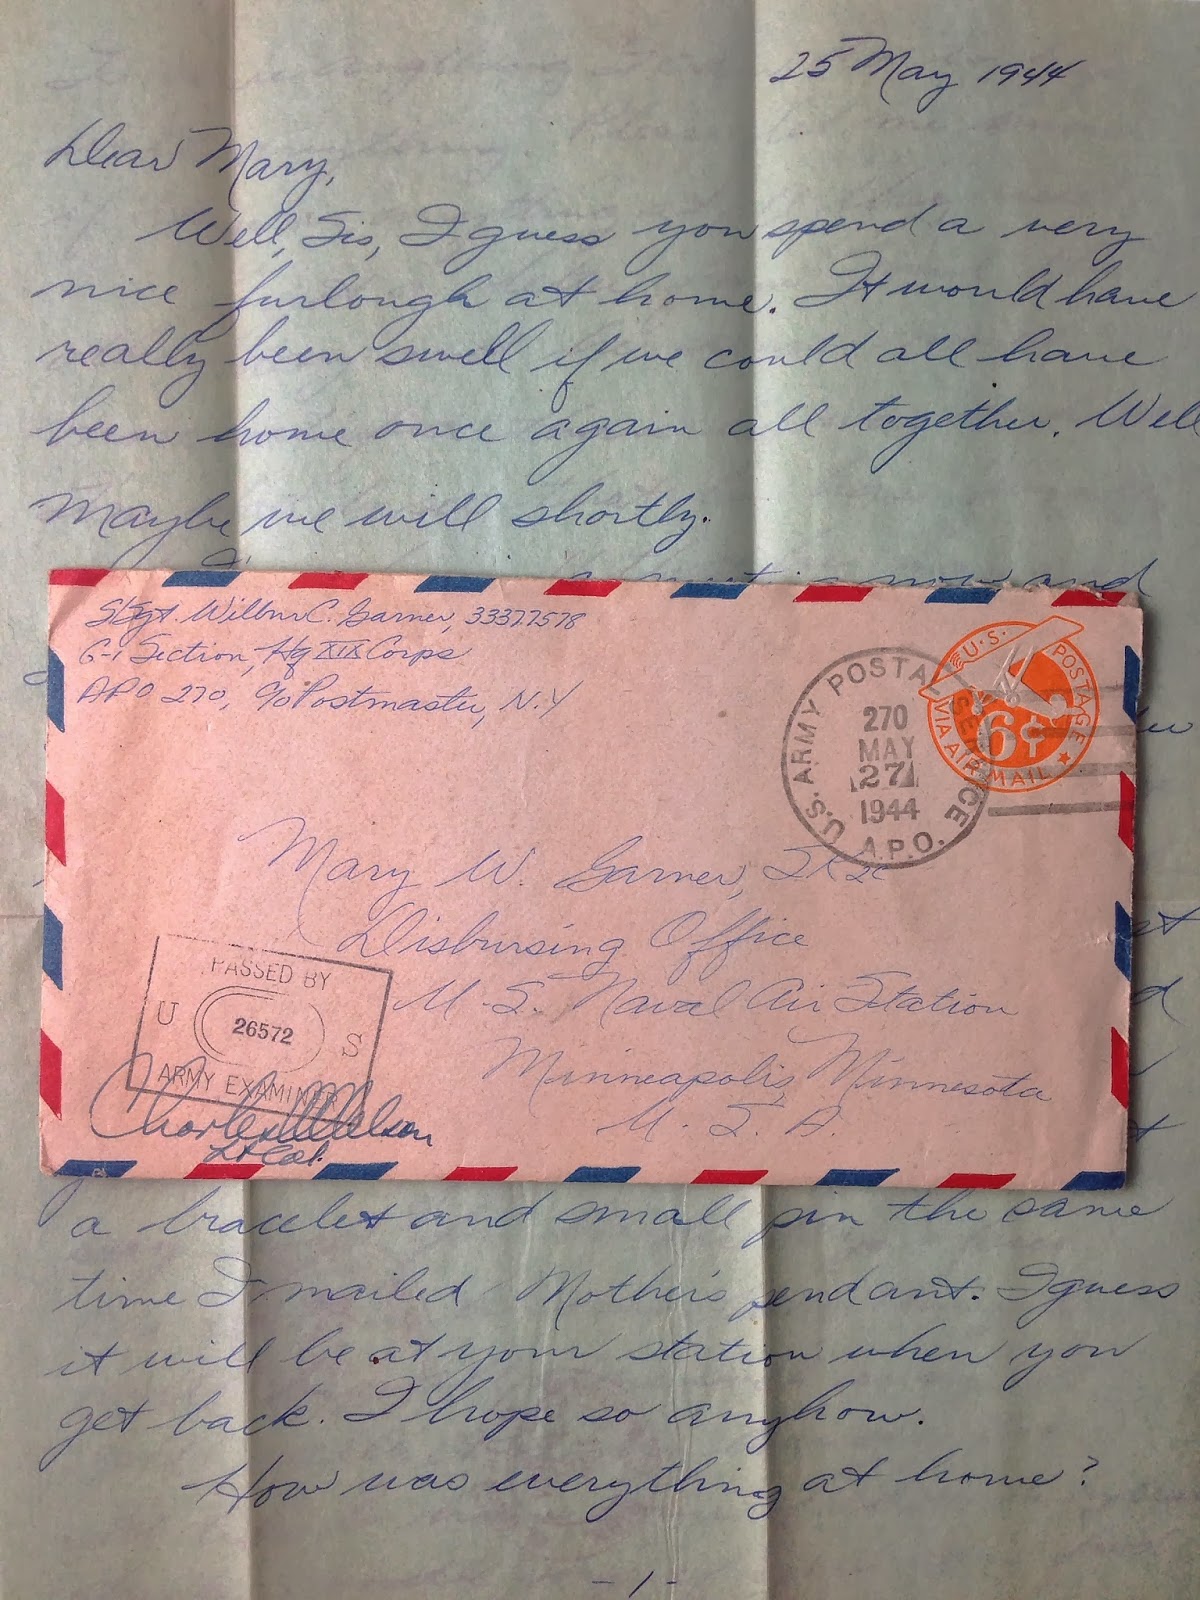 25 May 1944
Dear Mary,
Well, Sis, I guess you spend a very
nice furlough at home. It would have
really been swell if we could all have
been home once again all together. Well
maybe we will shortly.
now and
S/Sgt. Wilbur C. Garner, 33377578
G-1 Section, Hq XIX Corps
APO 270, c/o Postmaster, N.Y
U.S. POSTAGE
6¢
VIA AIR MAIL
U.S. ARMY POSTAL SERVICE
270
MAY
27
1944
A.P.O.
Mary W. Garner, SK2c
Disbursing Office
U.S. Naval Air Station
Minneapolis, Minnesota
U.S.A.
PASSED BY
U 26572 S
ARMY EXAMINER
Lt Col.
a bracelet and small pin the same
time I mailed Mother's pendant. I guess
it will be at your station when you
get back. I hope so anyhow.
How was everything at home?
-1-